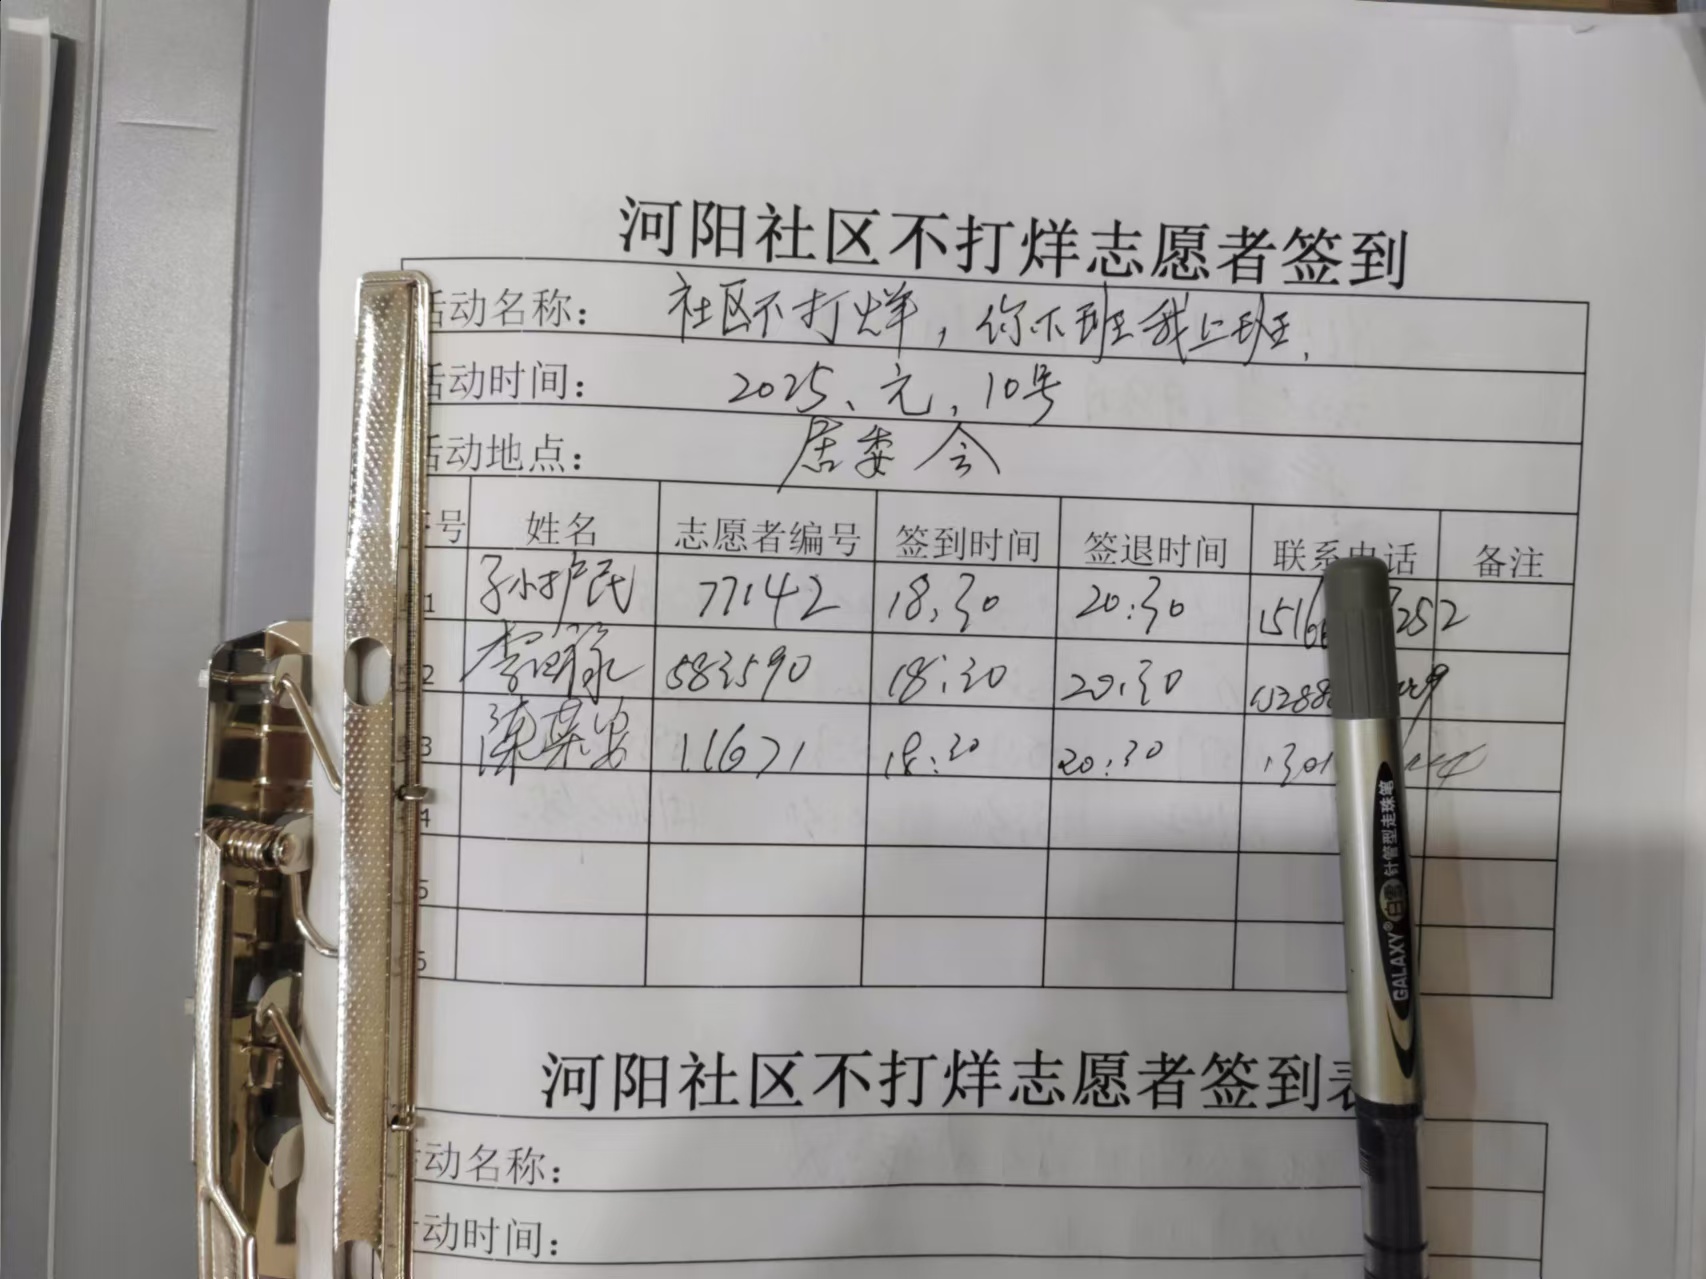 河阳社区不打烊志愿者签到
活动名称： 社区不打烊，你下班我上班.
活动时间： 2025、元，10号
活动地点： 居委会
号 姓名 志愿者编号 签到时间 签退时间 联系电话 备注
1 孙护民 77142 18:30 20:30 1516 252
2 583590 18:30 20:30
3 11671 18:30 20:30 1301
4
5
6
河阳社区不打烊志愿者签到表
活动名称：
活动时间：
GALAXY® 白雪 针管型走珠笔